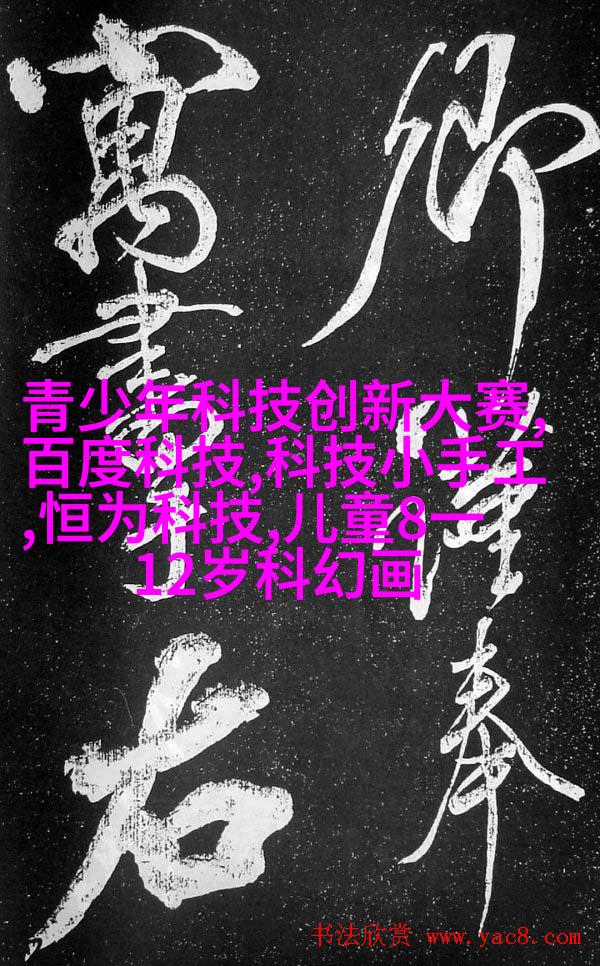 卿奉
寓書右
青少年科技创新大赛,
百度科技,科技小手工
,恒为科技,儿童8一
12岁科幻画
书法欣赏 www.yac8.com